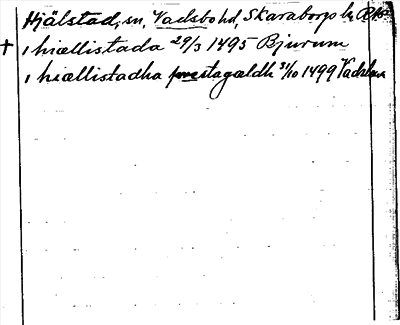 Hjälstad, sn, Vadsbo hd, Skaraborgs l.
† i hiællistada 29/3 1495 Bjurum
i hiællistadha prestagældh 31/10 1499 Vadstena